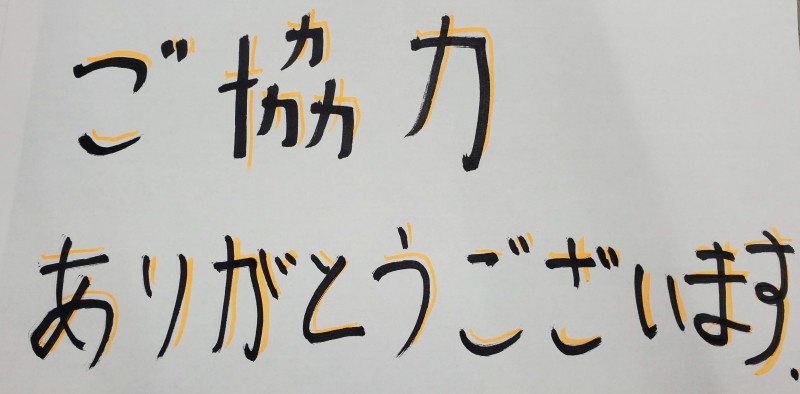 ご協力
ありがとうございます.